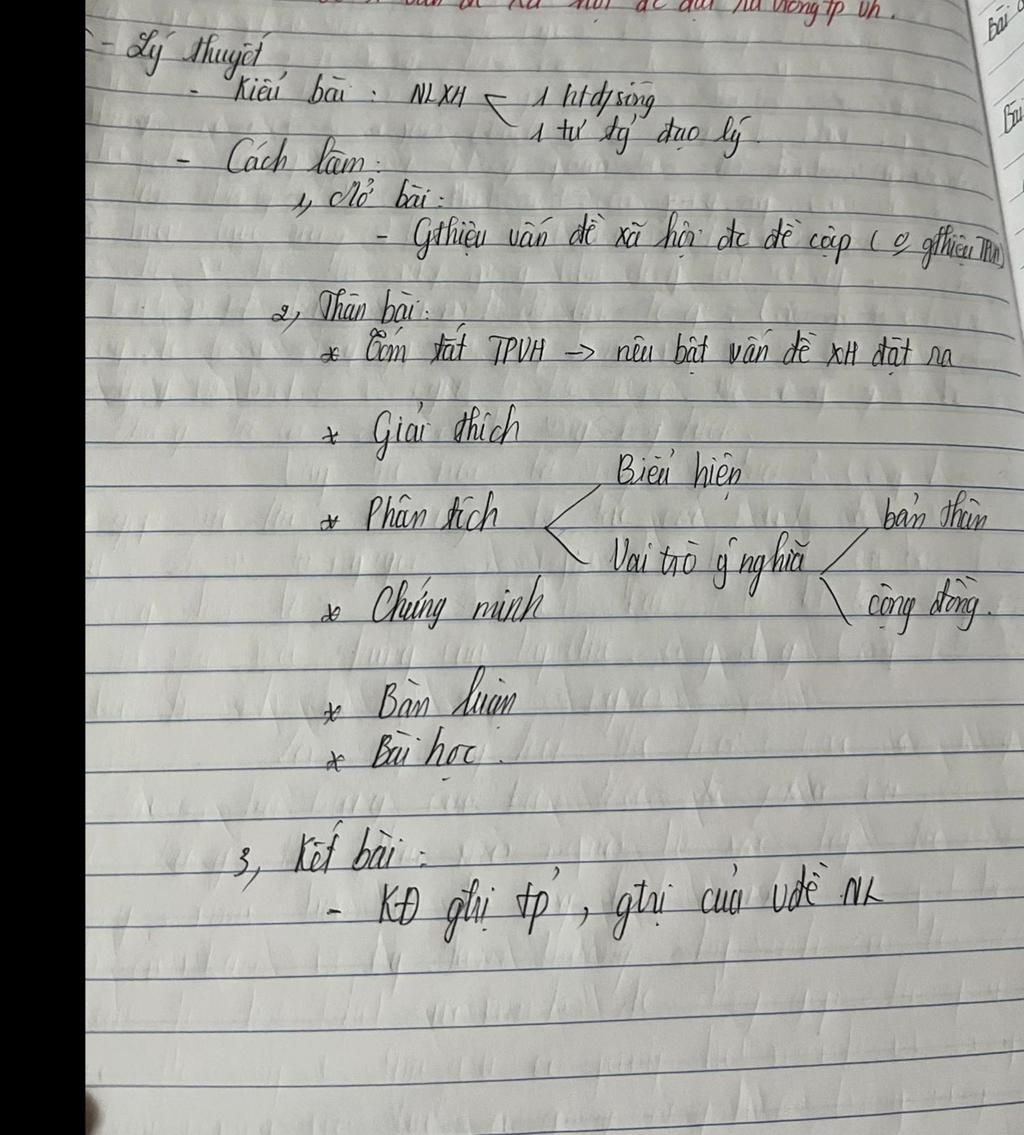 xã hội đc đặt ra trong tp vh.
- Lý thuyết
- Kiểu bài : NLXH < 1 htđ/sống
1 tư tg đạo lý
- Cách làm :
1, Mở bài :
- Gthiệu vấn đề xã hội đc đề cập ( gthiệu
2, Thân bài :
* Tóm tắt TPVH -> nêu bật vấn đề XH đặt ra
* Giải thích
Biểu hiện
* Phân tích
bản thân
Vai trò ý nghĩa
* Chứng minh
cộng đồng.
* Bàn luận
* Bài học .
3, Kết bài :
- KĐ gtrị tp , gtrị của vđề NL
Bài